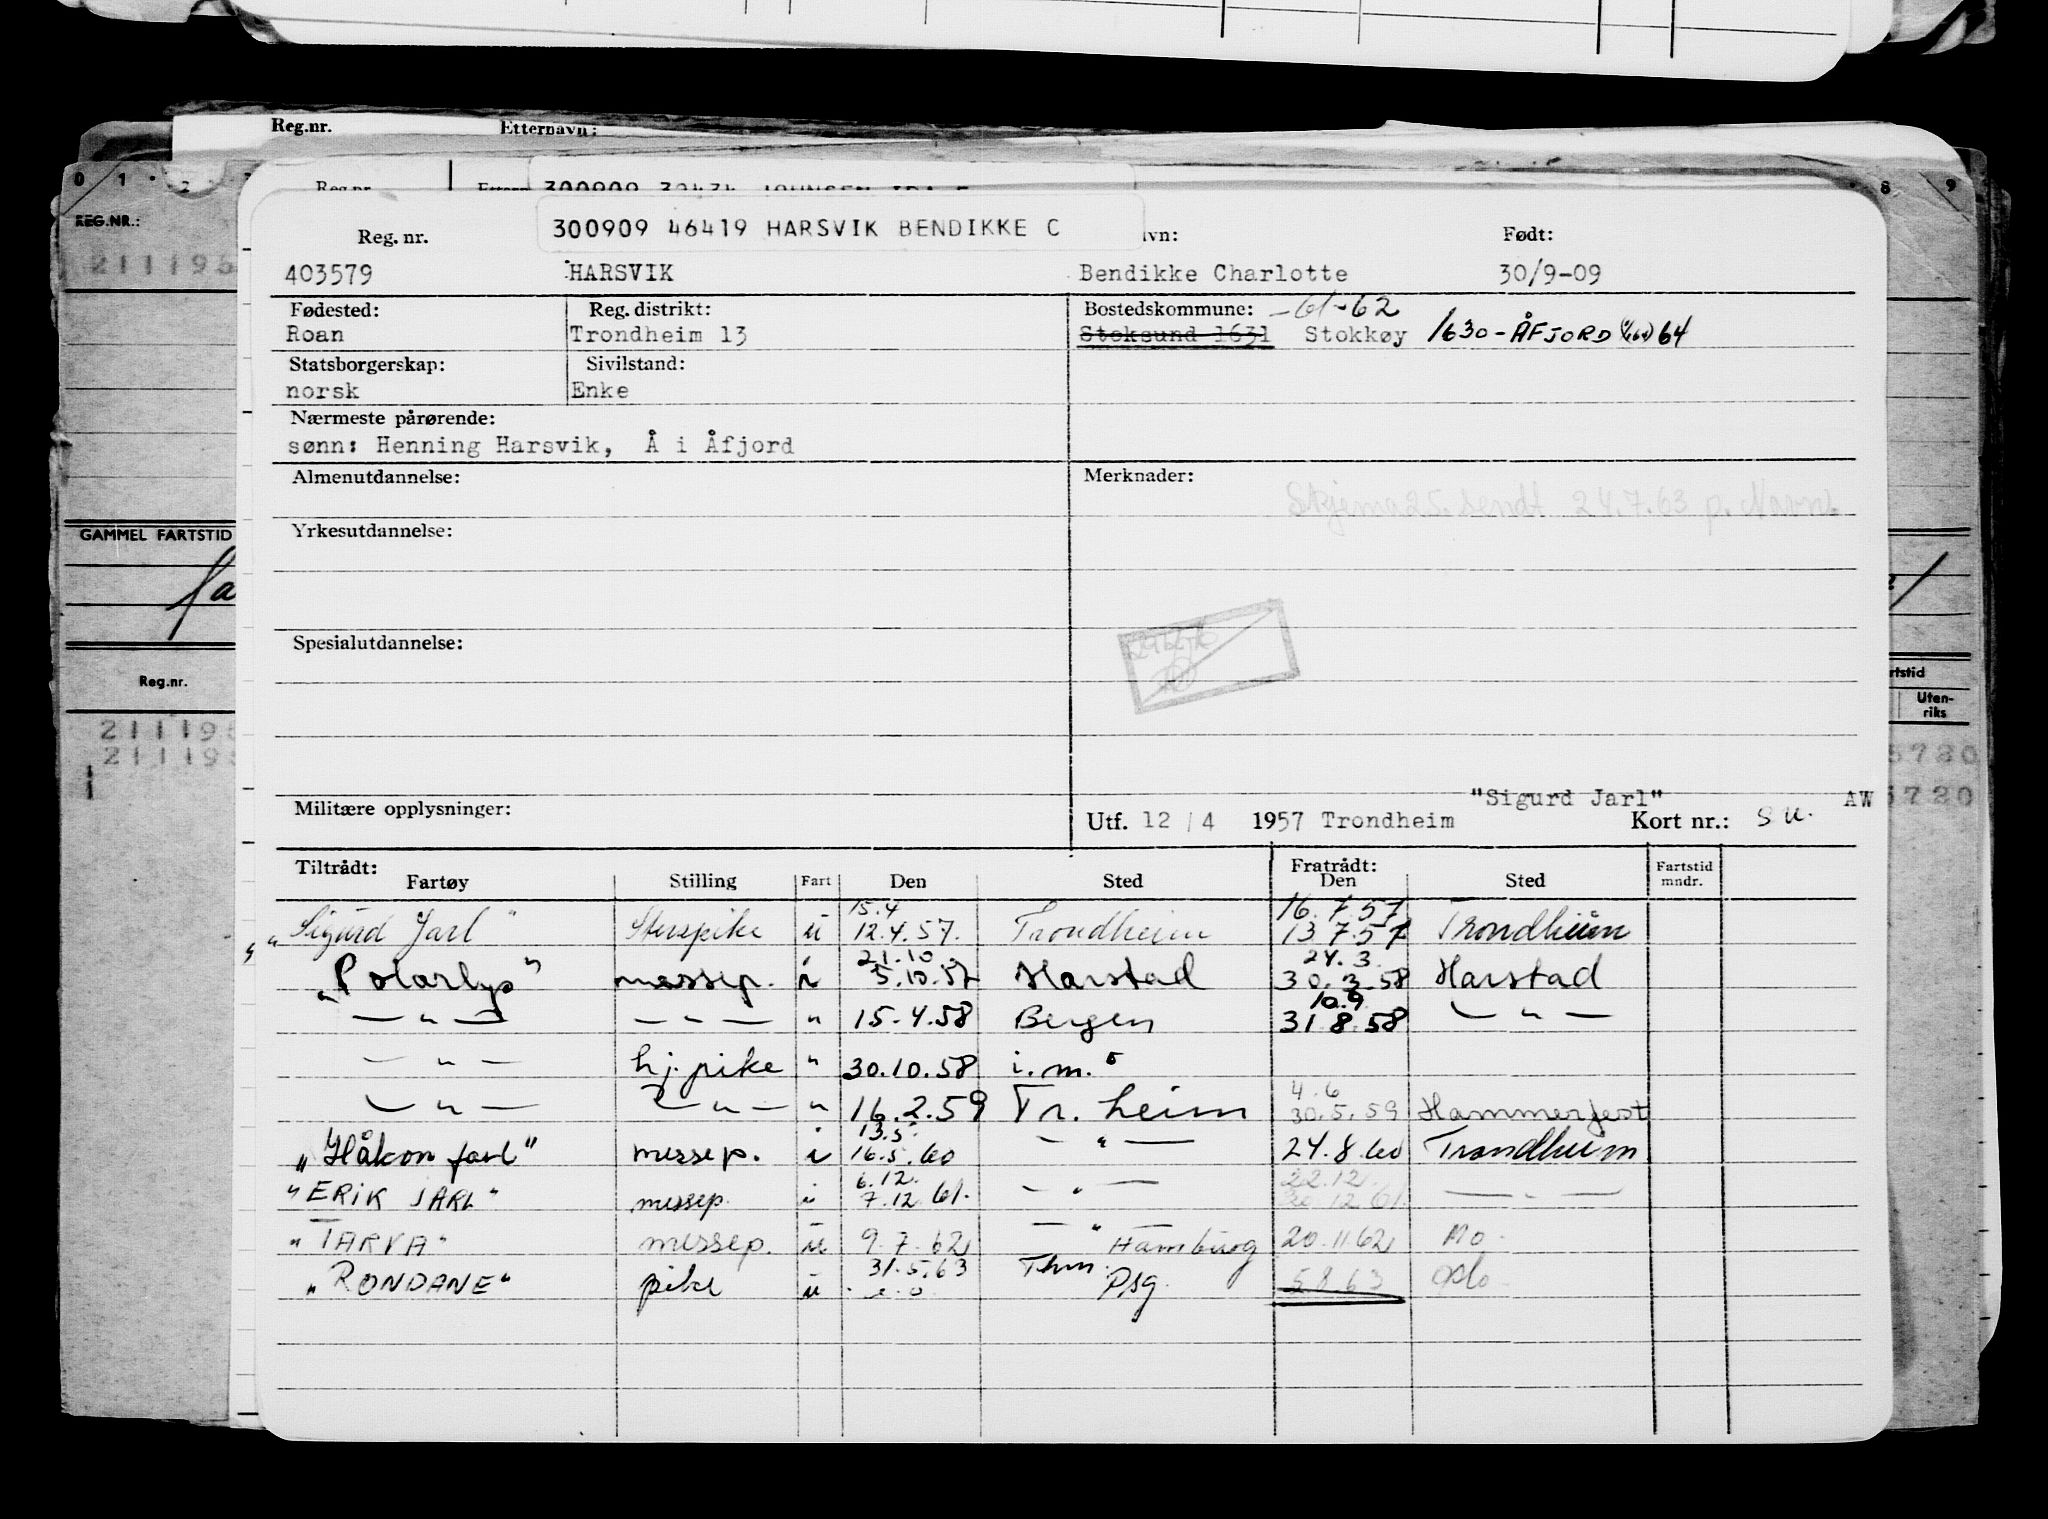 Reg.nr. Etternavn:
0 1 2 8 9
Reg.nr.
REG.NR.:
300909 46419 HARSVIK BENDIKKE C
Reg. nr. vn: Født:
403579 HARSVIK Bendikke Charlotte 30/9-09
Fødested: Reg. distrikt: Bostedskommune: -61-62
Roan Trondheim 13 Stoksund 1631 Stokkøy 1630-ÅFJORD 64
Statsborgerskap: Sivilstand:
norsk Enke
Nærmeste pårørende:
sønn: Henning Harsvik, Å i Åfjord
Almenutdannelse: Merknader:
Skjema 25. sendt 24.7.63 p. Navn.
Yrkesutdannelse:
GAMMEL FARTSTID
Spesialutdannelse:
Reg.nr. rtstid
Uten-
riks
21119
21119
5720
"Sigurd Jarl" AW
Militære opplysninger: Utf. 12/4 1957 Trondheim Kort nr.: s u.
Tiltrådt: Fratrådt: Fartstid
Fartøy Stilling Fart Den Sted Den Sted mndr.
15.4 16.7.57
"Sigurd Jarl" u 12.4.57. Trondheim 13.7.57 Trondheim
21.10. 24.3.
"Polarlys" messep. i 5.10.57 Harstad 30.3.58 Harstad
10.9
— " — — " — " 15.4.58 Bergen 31.8.58 — " —
— " — hj. pike " 30.10.58 i.m.
4.6
— " — — " — " 16.2.59 Tr. heim 30.5.59 Hammerfest
13.5.
"Håkon Jarl" messep. i 16.5.60 — " — 24.8.60 Trondheim
6.12. 22.12.
"ERIK JARL" messep. i 7.12.61. — " — 20.12.61. — " —
"TARVA" messep. u 9.7.62 — " — Hamburg 20.11.62 Mo.
31.5.63 Thm.
"RONDANE" pike u Psg. 5.8.63 Oslo